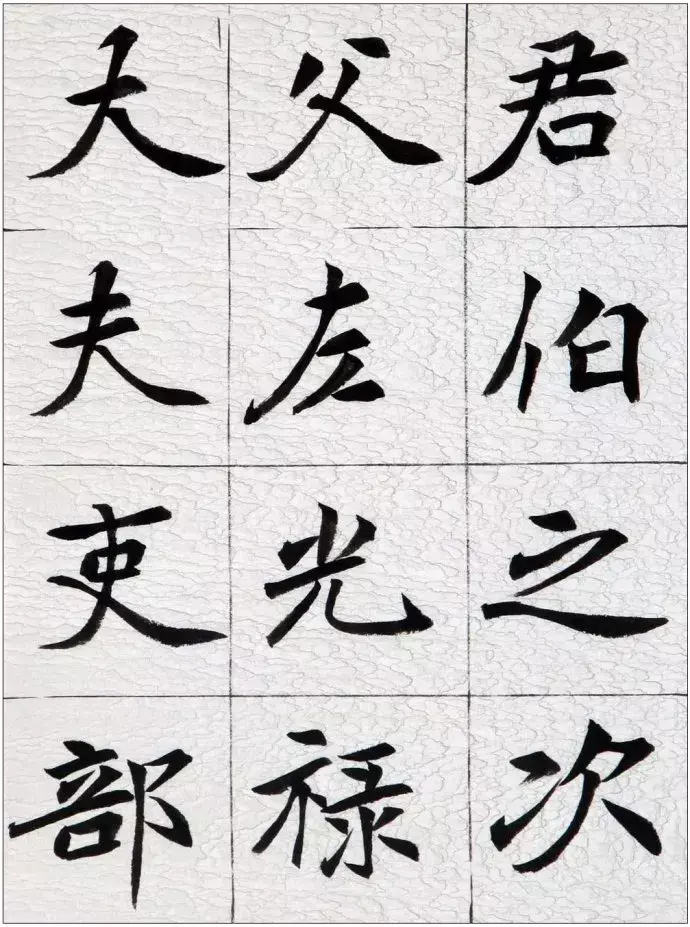 君伯之次
父左光禄
大夫吏部